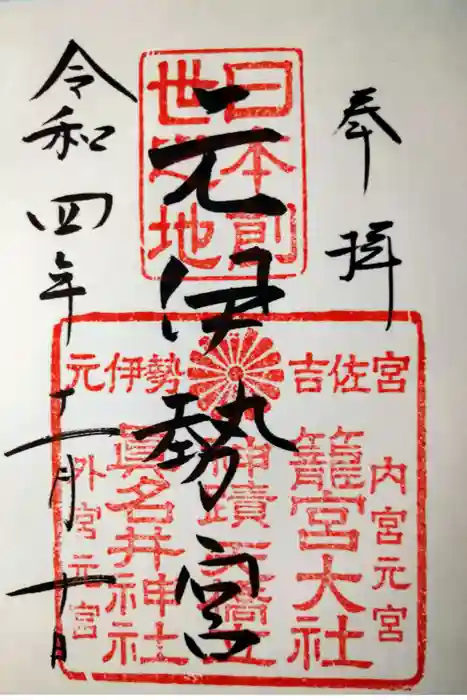 奉拝
日本創
世地
元伊勢宮
元伊勢 吉佐宮
内宮元宮
籠宮大社
神蹟天橋立
眞名井神社
外宮元宮
令和四年十一月十日